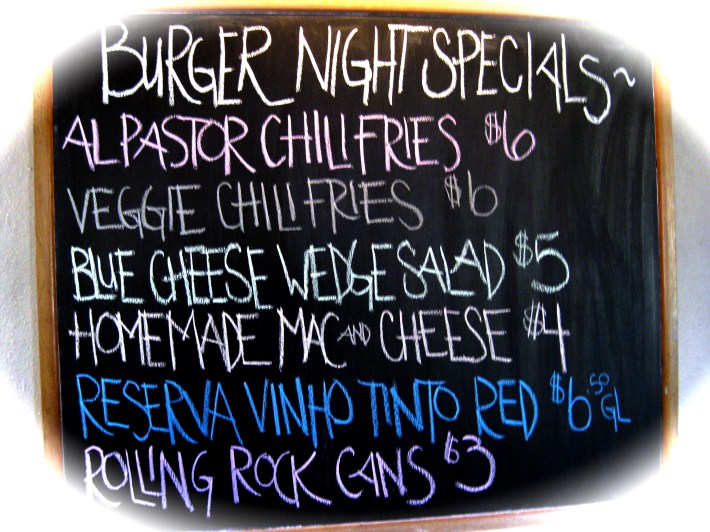 BURGER NIGHT SPECIALS~
AL PASTOR CHILI FRIES $6
VEGGIE CHILI FRIES $6
BLUE CHEESE WEDGE SALAD $5
HOMEMADE MAC AND CHEESE $4
RESERVA VINHO TINTO RED $6.50 GL
ROLLING ROCK CANS $3